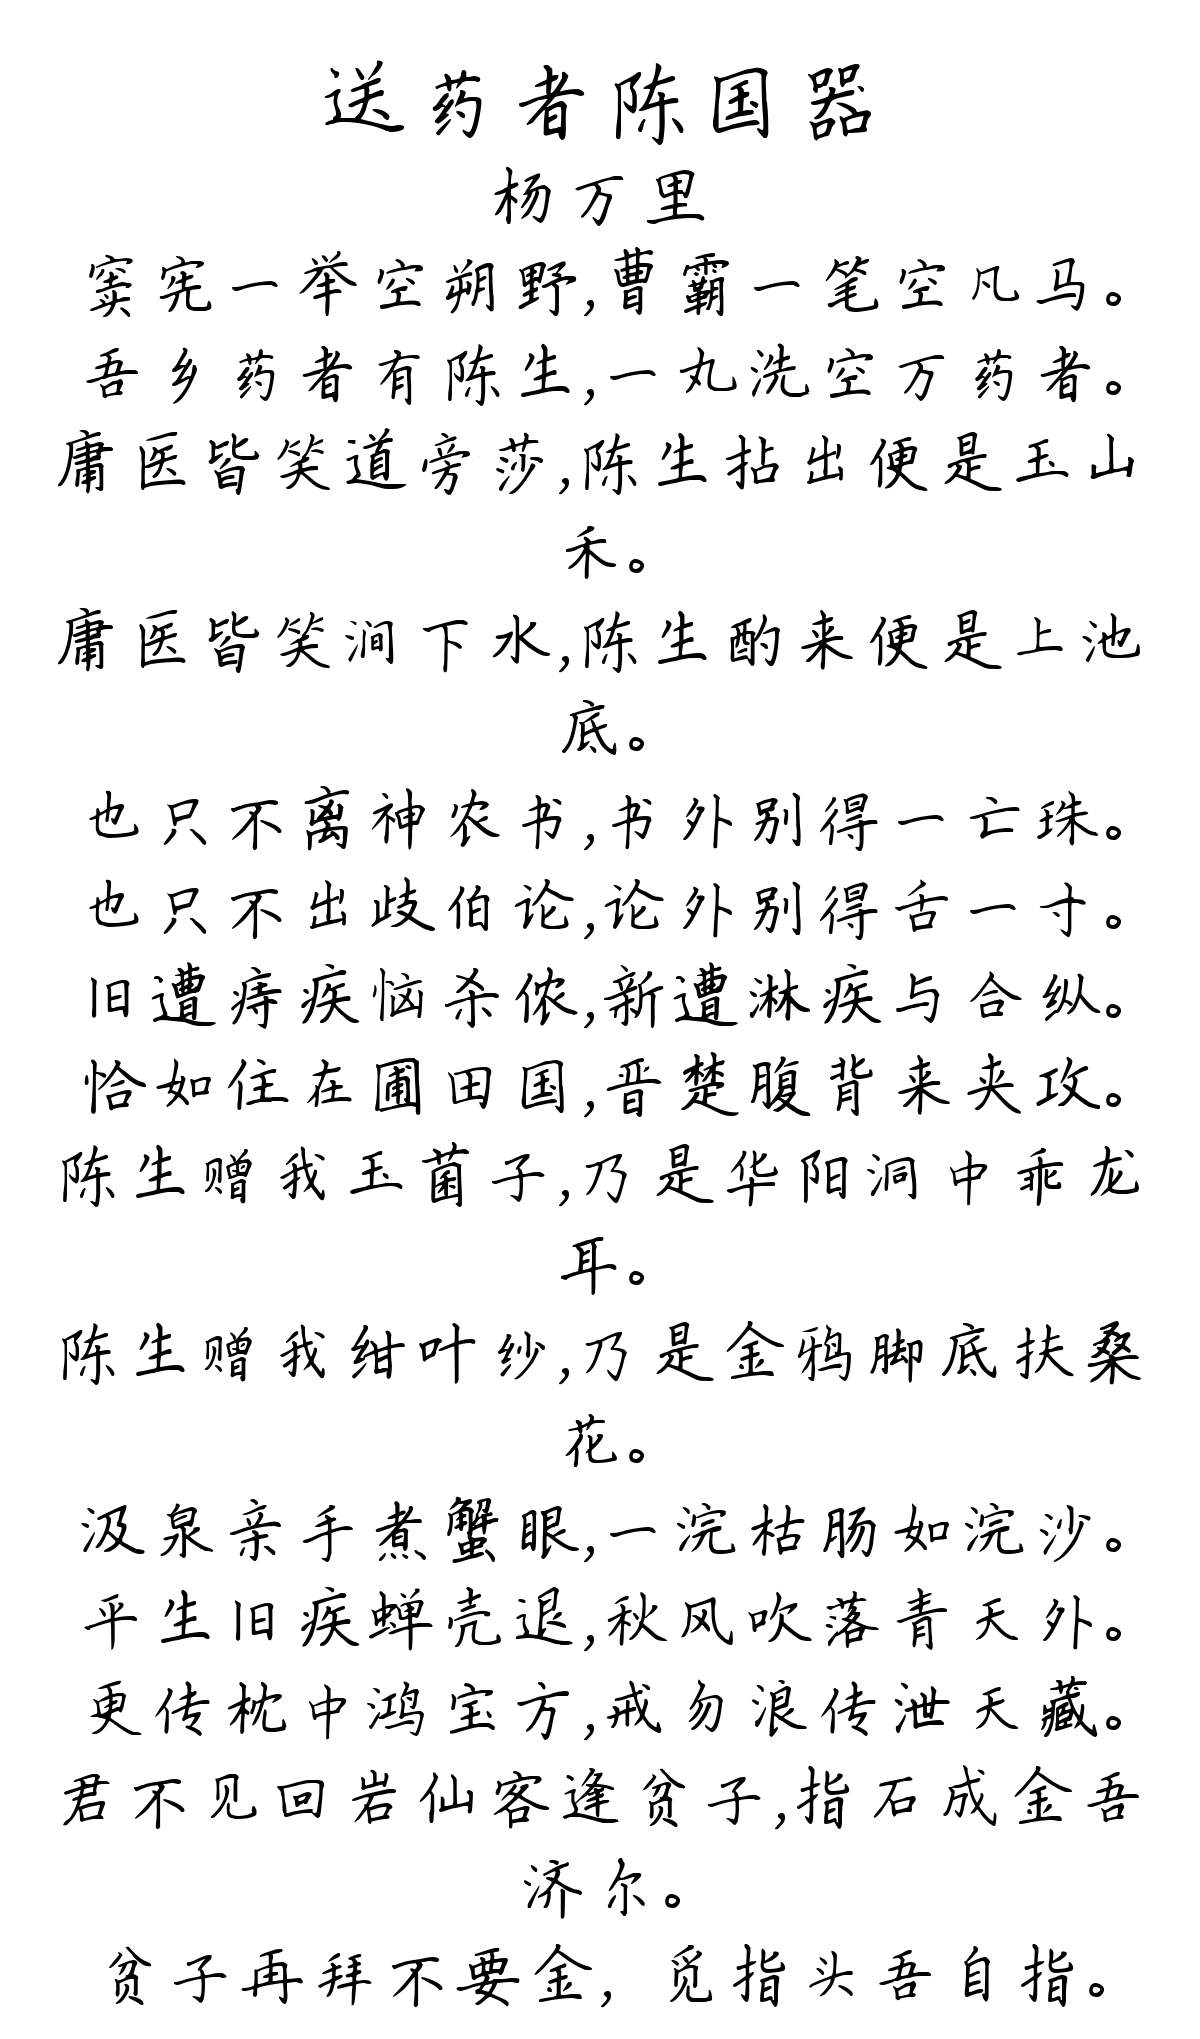 送药者陈国器
杨万里
窦宪一举空朔野,曹霸一笔空凡马。
吾乡药者有陈生,一丸洗空万药者。
庸医皆笑道旁莎,陈生拈出便是玉山
禾。
庸医皆笑涧下水,陈生酌来便是上池
底。
也只不离神农书,书外别得一亡珠。
也只不出歧伯论,论外别得舌一寸。
旧遭痔疾恼杀侬,新遭淋疾与合纵。
恰如住在圃田国,晋楚腹背来夹攻。
陈生赠我玉菌子,乃是华阳洞中乖龙
耳。
陈生赠我绀叶纱,乃是金鸦脚底扶桑
花。
汲泉亲手煮蟹眼,一浣枯肠如浣沙。
平生旧疾蝉壳退,秋风吹落青天外。
更传枕中鸿宝方,戒勿浪传泄天藏。
君不见回岩仙客逢贫子,指石成金吾
济尔。
贫子再拜不要金，觅指头吾自指。